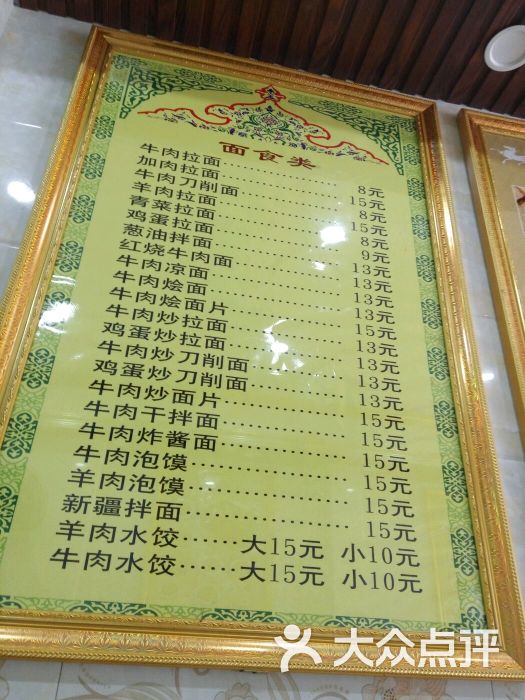 面食类
牛肉拉面 8元
加肉拉面 15元
牛肉刀削面 8元
羊肉拉面 15元
青菜拉面 8元
鸡蛋拉面 9元
葱油拌面 13元
红烧牛肉面 13元
牛肉凉面 13元
牛肉烩面 13元
牛肉烩面片 15元
牛肉炒拉面 13元
鸡蛋炒拉面 13元
牛肉炒刀削面 13元
鸡蛋炒刀削面 13元
牛肉炒面片 15元
牛肉干拌面 15元
牛肉炸酱面 15元
牛肉泡馍 15元
羊肉泡馍 15元
新疆拌面 15元
羊肉水饺 大15元 小10元
牛肉水饺 大15元 小10元
大众点评